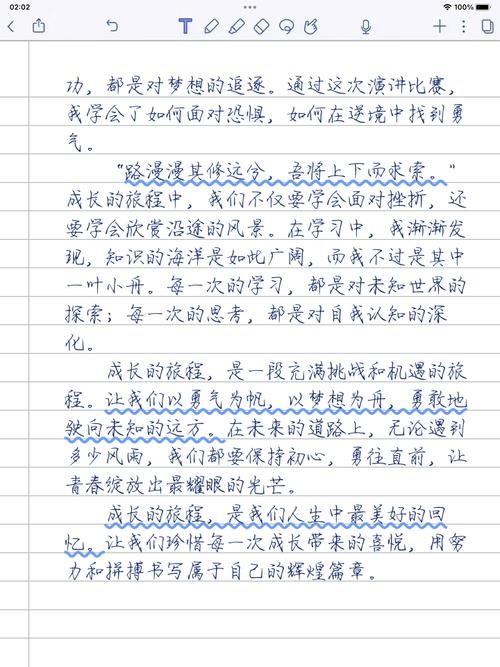 02:02
100%
T
功，都是对梦想的追逐。通过这次演讲比赛，
我学会了如何面对恐惧，如何在逆境中找到勇
气。
“路漫漫其修远兮，吾将上下而求索。”
成长的旅程中，我们不仅要学会面对挫折，还
要学会欣赏沿途的风景。在学习中，我渐渐发
现，知识的海洋是如此广阔，而我不过是其中
一叶小舟。每一次的学习，都是对未知世界的
探索；每一次的思考，都是对自我认知的深
化。
成长的旅程，是一段充满挑战和机遇的旅
程。让我们以勇气为帆，以梦想为舟，勇敢地
驶向未知的远方。在未来的道路上，无论遇到
多少风雨，我们都要保持初心，勇往直前，让
青春绽放出最耀眼的光芒。
成长的旅程，是我们人生中最美好的回
忆。让我们珍惜每一次成长带来的喜悦，用努
力和拼搏书写属于自己的辉煌篇章。